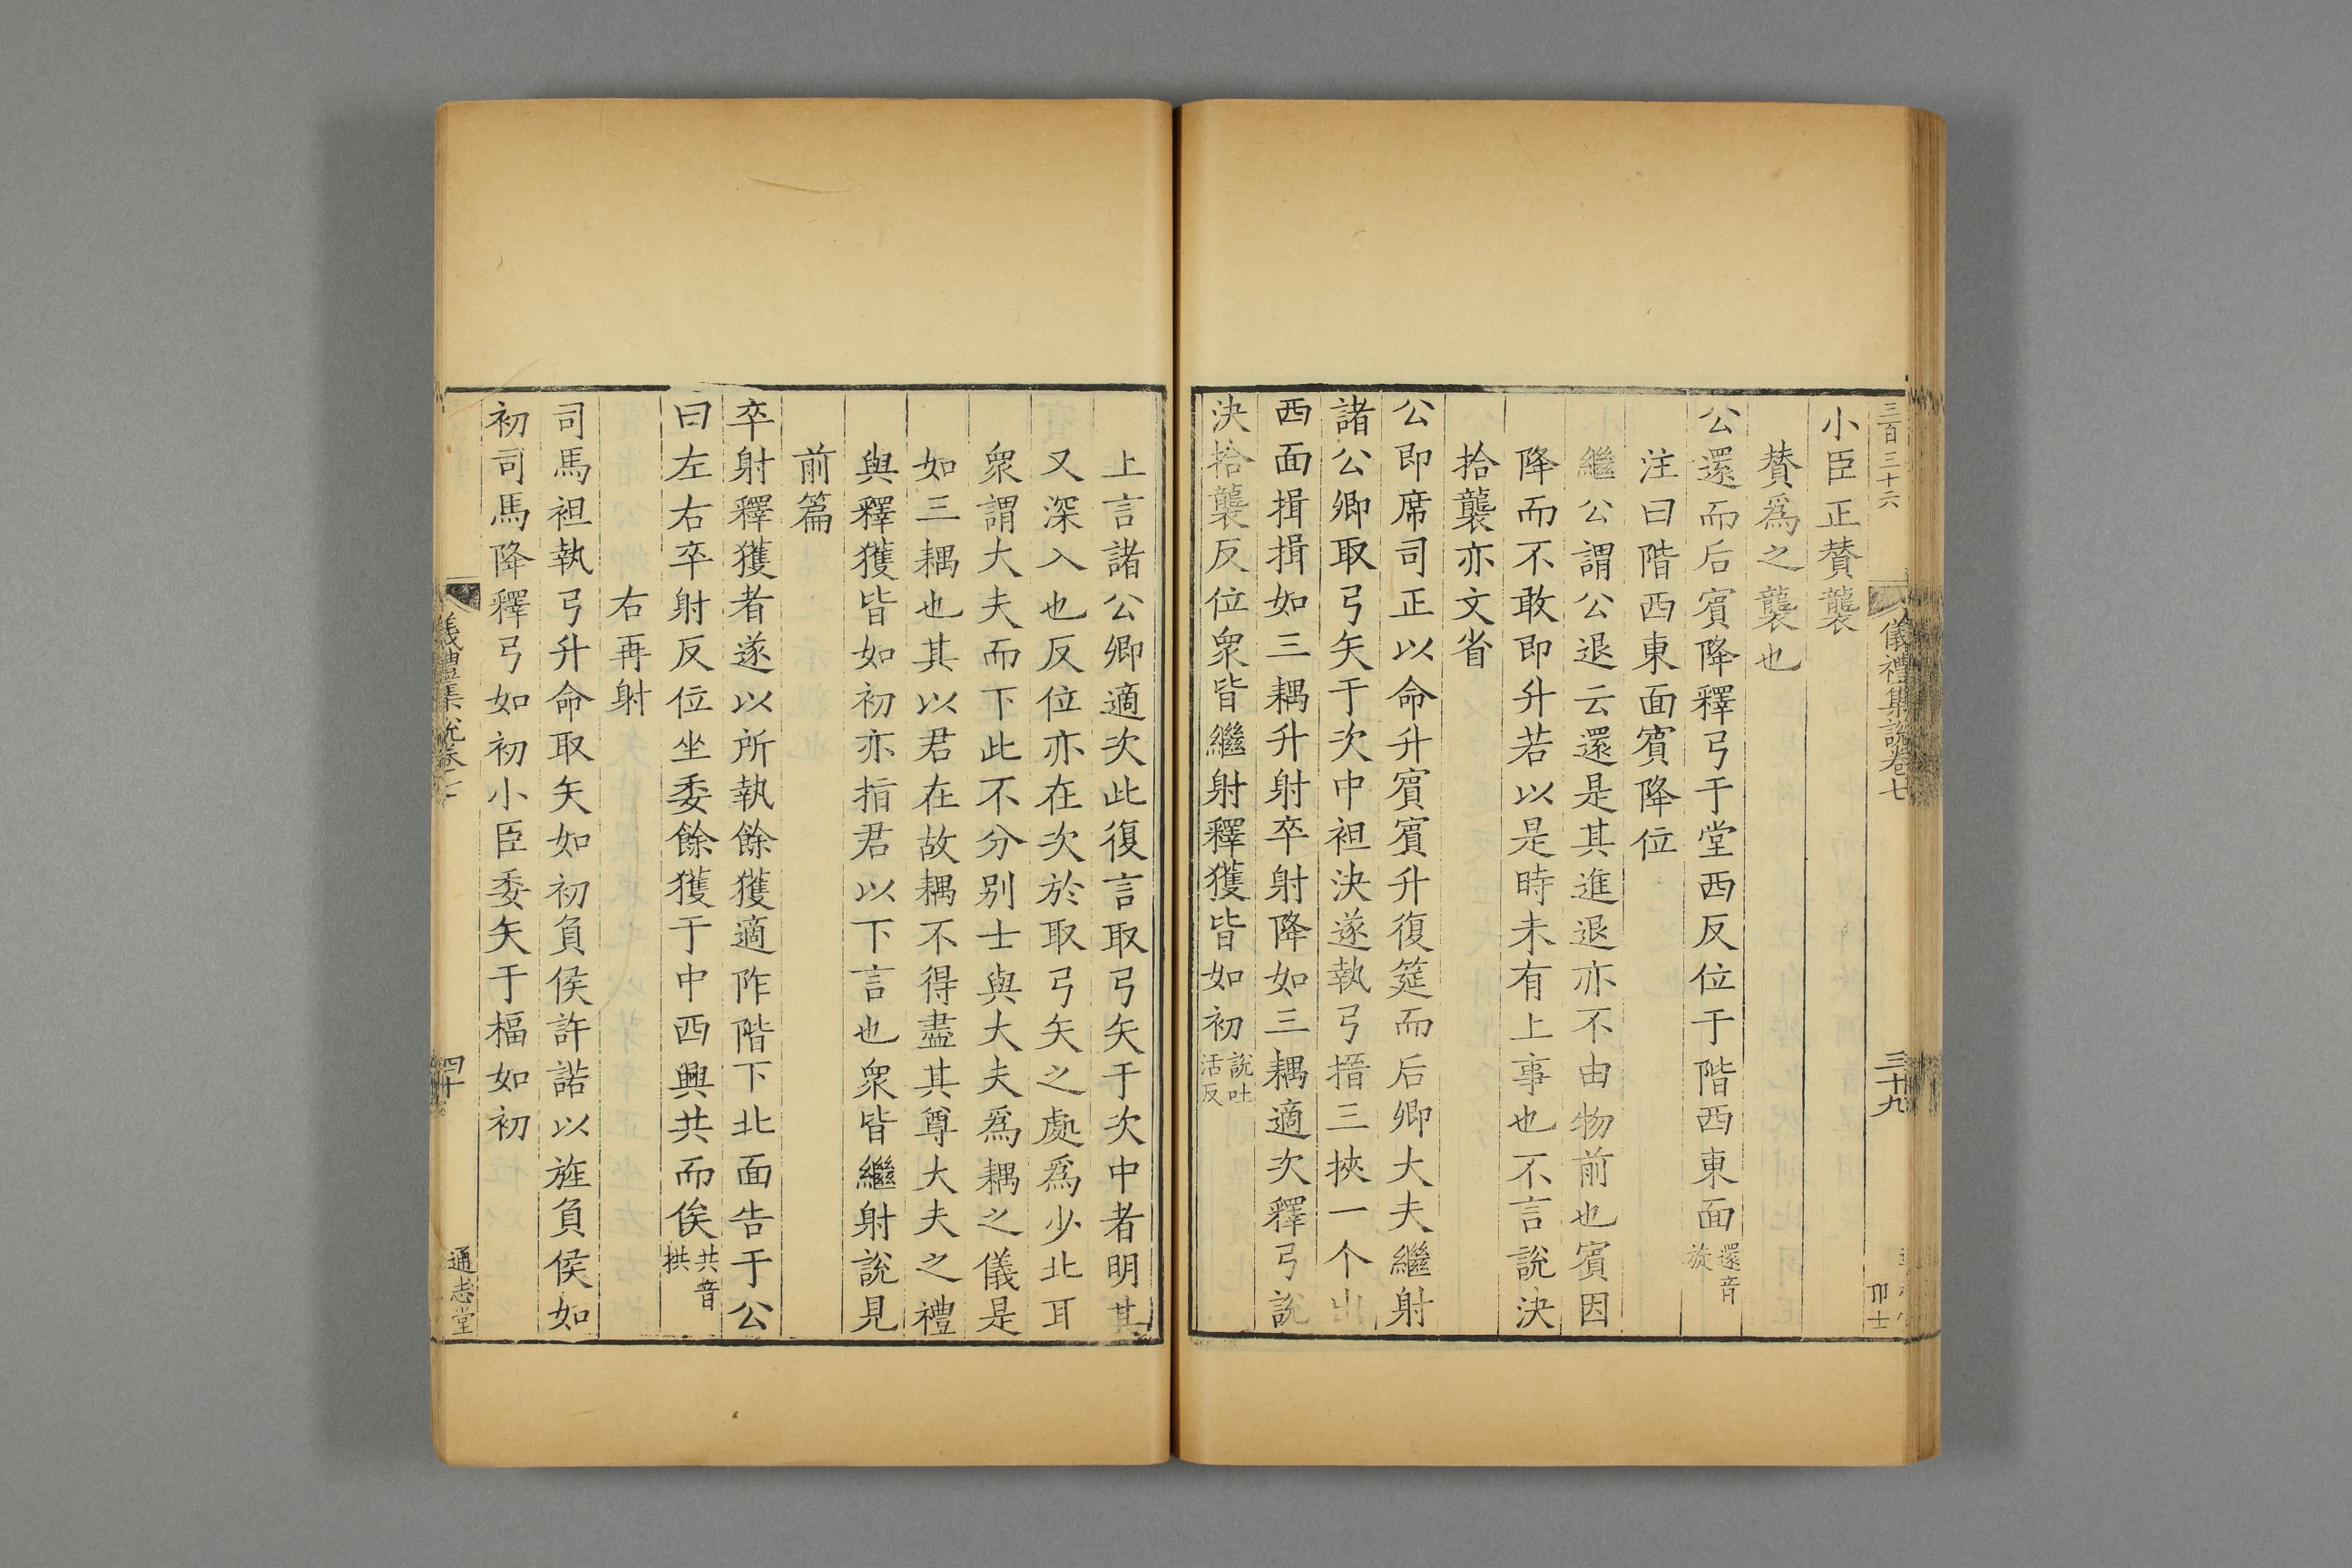 三百三十六
儀禮集説卷七
三十九
小臣正賛襲
賛爲之襲也
公還而后賓降釋弓于堂西反位于階西東面還音旋
注曰階西東面賓降位
繼公謂公退云還是其進退亦不由物前也賓因
降而不敢即升若以是時未有上事也不言説決
拾襲亦文省
公即席司正以命升賓賓升復筵而后卿大夫繼射
諸公卿取弓矢于次中袒決遂執弓搢三挾一个出
西面揖揖如三耦升射卒射降如三耦適次釋弓説
決拾襲反位衆皆繼射釋獲皆如初説吐活反
上言諸公卿適次此復言取弓矢于次中者明其
又深入也反位亦在次於取弓矢之處爲少北耳
衆謂大夫而下此不分别士與大夫爲耦之儀是
如三耦也其以君在故耦不得盡其尊大夫之禮
與釋獲皆如初亦指君以下言也衆皆繼射説見
前篇
卒射釋獲者遂以所執餘獲適阼階下北面告于公
曰左右卒射反位坐委餘獲于中西興共而俟共音拱
右再射
司馬袒執弓升命取矢如初負侯許諾以旌負侯如
初司馬降釋弓如初小臣委矢于楅如初
儀禮集説卷七
四十
通志堂